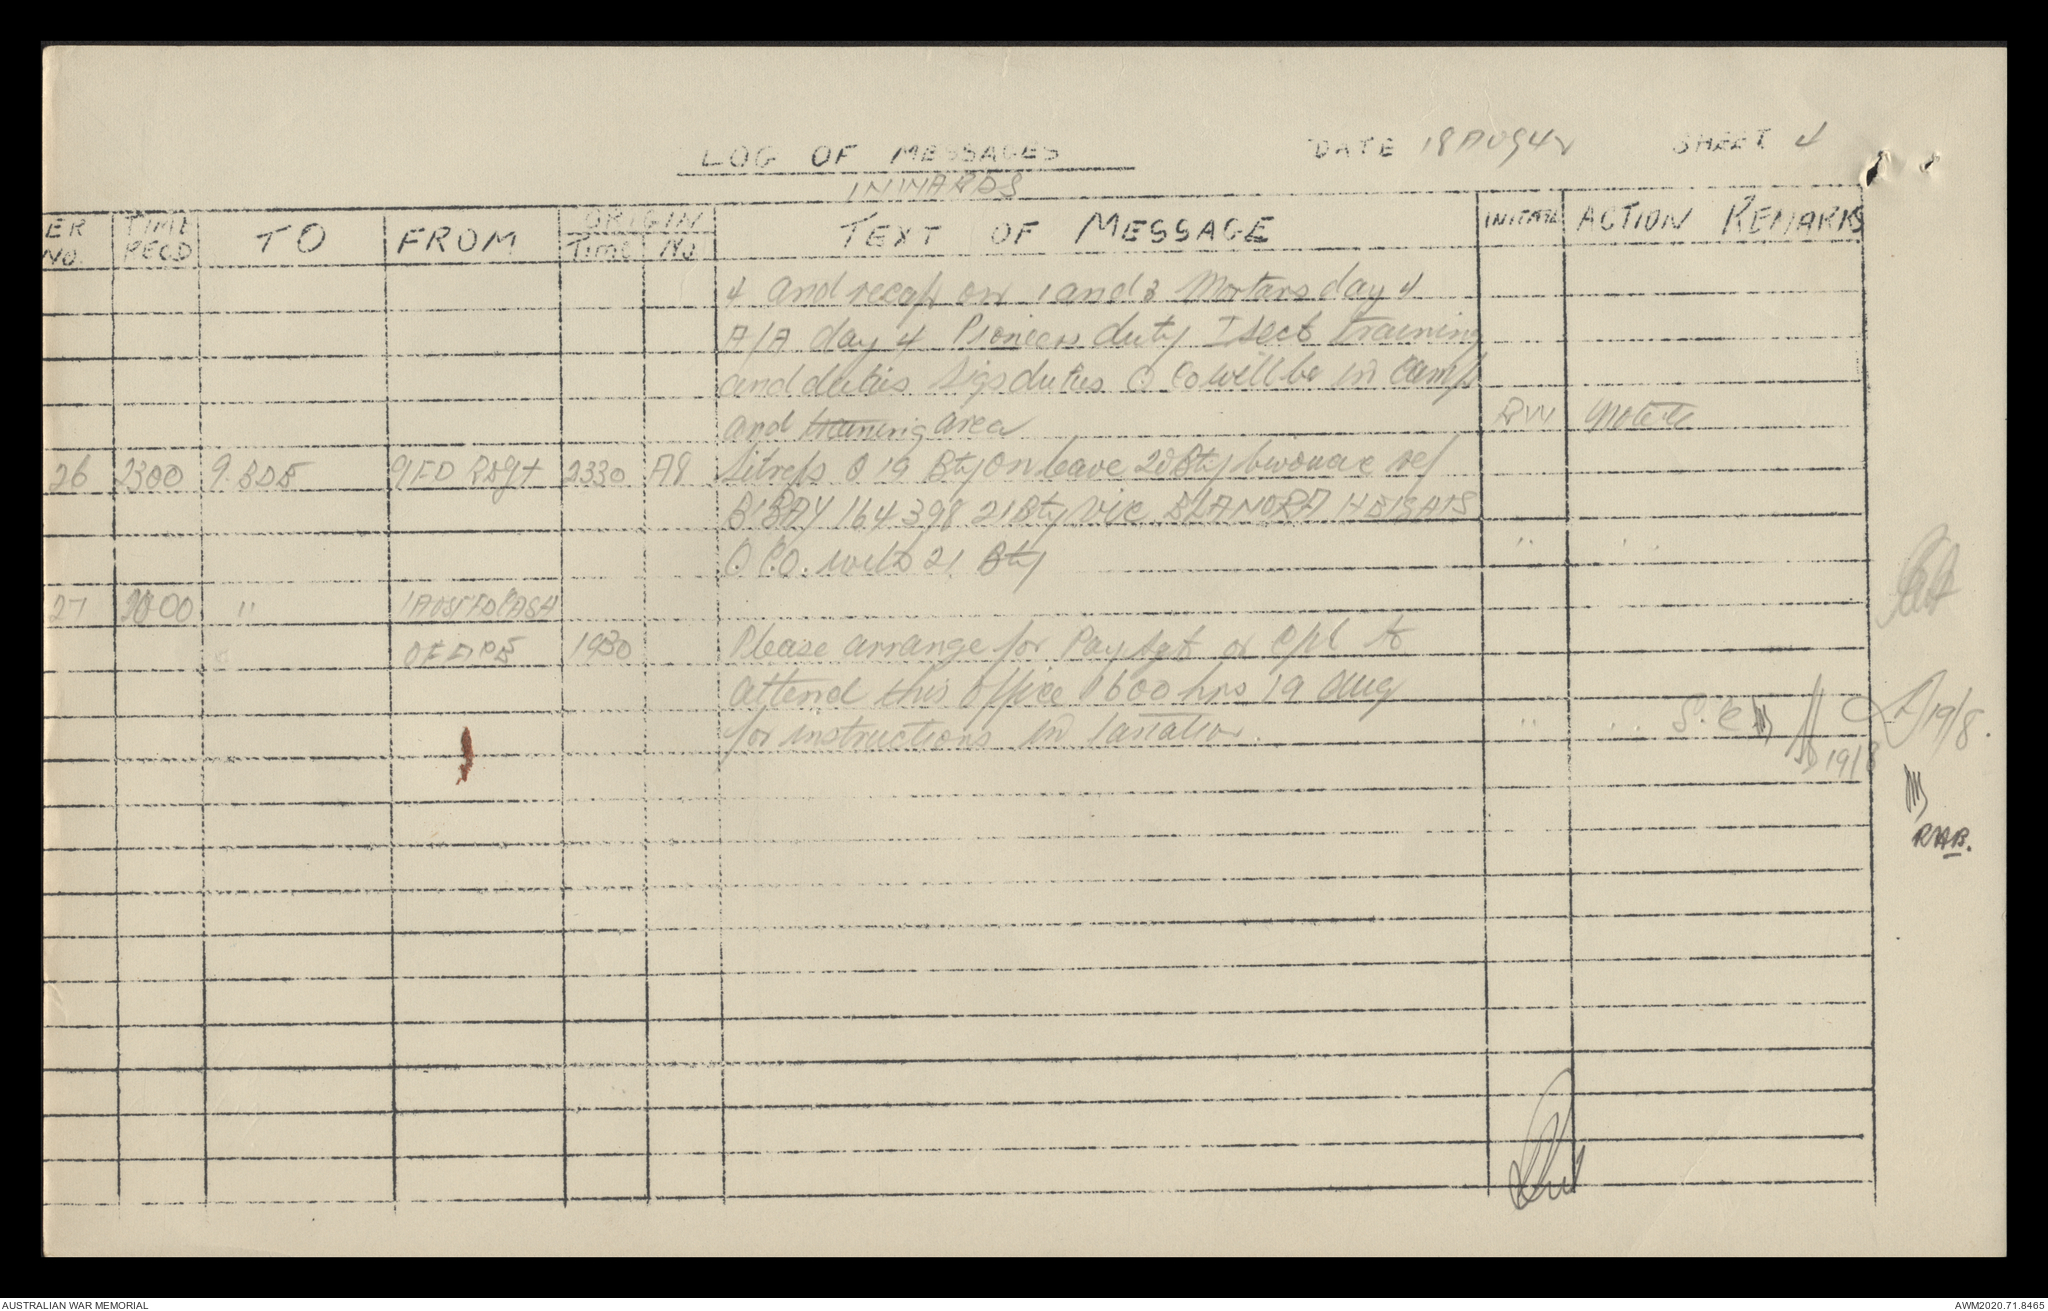 LOG OF MESSAGES
INWARDS
DATE 18 AUG 42
SHEET 4
ER NO. TIME RECD TO FROM ORIGIN TIME NO TEXT OF MESSAGE INITIAL ACTION REMARKS
4 and recap on 1 and 3 Mortars day 4
A/A day 4 Pioneers duty I sect training
and duties Sigs duties O Co will be in Camp
and training area RW Noted
26 2300 9. BDE 9 FD Regt 2330 A8 Sitreps O 19 Bty on leave 20 Bty bivouac ref
B'BAY 164398 21 Bty vic ELANORA HEIGHTS
O.P.O. with 21 Bty " "
27 2000 " 1 AUST FD CASH
OFFICE 1930 Please arrange for Pay Sgt or Cpl to
attend this office 1600 hrs 19 Aug
for instructions in taxation. " " S.C.
19/8
19/8.
RAB.
AUSTRALIAN WAR MEMORIAL
AWM2020.71.8465